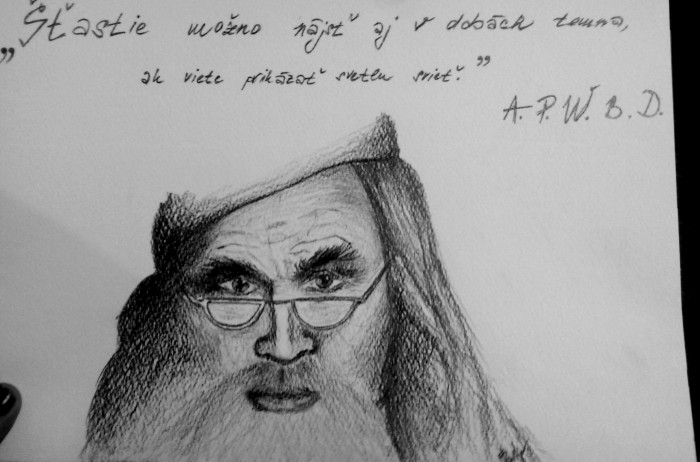 „Šťastie možno nájsť aj v dobách temna,
ak viete prikázať svetlu svieť.”
A.P.W.B.D.